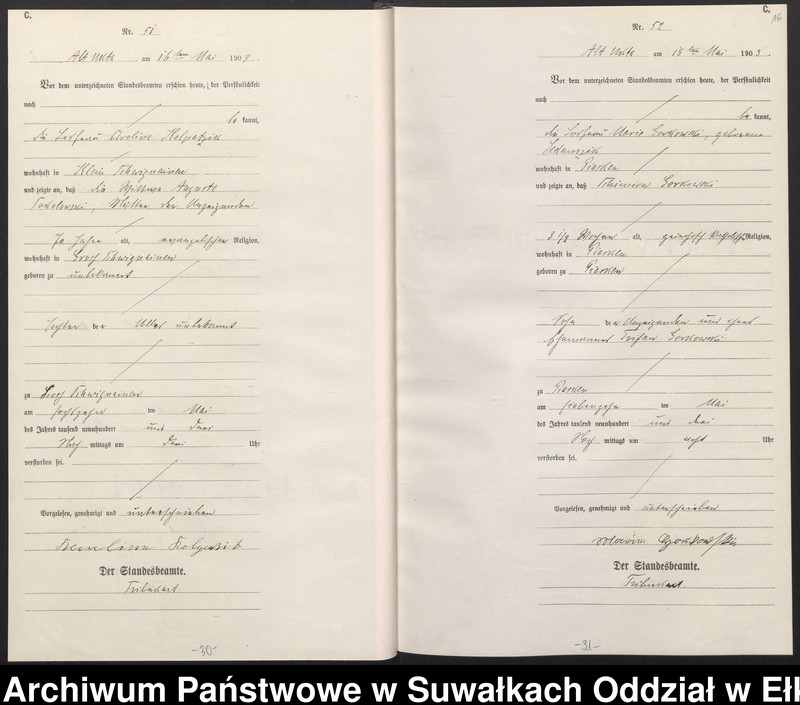 C.
Nr. 51
Alt Ukta am 16ten Mai 1903.
Vor dem unterzeichneten Standesbeamten erschien heute, der Persönlichkeit
nach
be kannt,
die Losfrau Caroline
wohnhaft in Klein
und zeigte an, daß die Wittwe Auguste
Sokolowski, Mutter der Anzeigenden
70 Jahre alt, evangelischer Religion,
wohnhaft in Groß
geboren zu unbekannt
Tochter der Alles unbekannt
zu Groß
am sechszehn ten Mai
des Jahres tausend neunhundert und drei
Nach mittags um drei Uhr
verstorben sei.
Vorgelesen, genehmigt und unterschrieben
Der Standesbeamte.
-30-
C.
16
Nr. 52
Alt Ukta am 18ten Mai 1903.
Vor dem unterzeichneten Standesbeamten erschien heute, der Persönlichkeit
nach
be kannt,
die Losfrau Marie Gorkowski, geborene
wohnhaft in Piasken
und zeigte an, daß Gorkowski
3 1/2 Wochen alt, griechisch katholisch Religion,
wohnhaft in Piasken
geboren zu Piasken
Sohn der Anzeigenden und ihres
Ehemannes Gorkowski
zu Piasken
am siebenzehn ten Mai
des Jahres tausend neunhundert und drei
Nach mittags um acht Uhr
verstorben sei.
Vorgelesen, genehmigt und unterschrieben
Der Standesbeamte.
-31-
Archiwum Państwowe w Suwałkach Oddział w Ełk